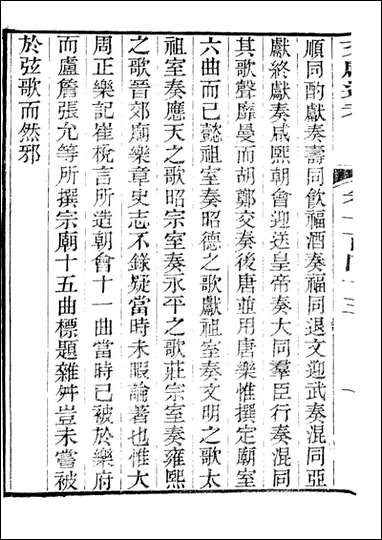 順同酌獻奏壽同飲福酒奏福同退文迎武奏混同亞
獻終獻奏咸熙朝會迎送皇帝奏大同羣臣行奏混同
其歌聲靡曼而胡鄭交奏後唐並用唐樂惟撰定廟室
六曲而已懿祖室奏昭德之歌獻祖室奏文明之歌太
祖室奏應天之歌昭宗室奏永平之歌莊宗室奏雍熙
之歌晉郊廟樂章史志不錄疑當時未暇論著也惟大
周正樂記崔梲言所造朝會十一曲當時已被於樂府
而盧詹張允等所撰宗廟十五曲標題雜舛豈未嘗被
於弦歌而然邪